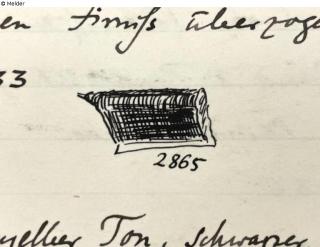 © Melder
en Firniß überzoge
33
2865
gelber Ton, schwarzer